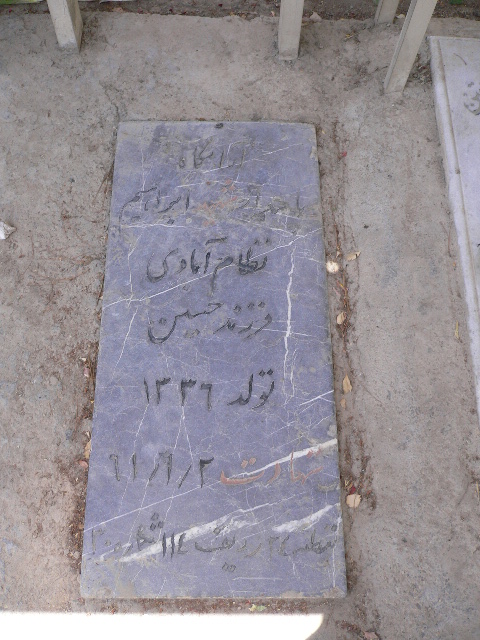 آرامگاه
ابراهیم
نظام آبادی
فرزند حسین
تولد ۱۳۳۶
شهادت ۶۱/۶/۲
قطعه ۲۴ ردیف ۱۱۴ شماره